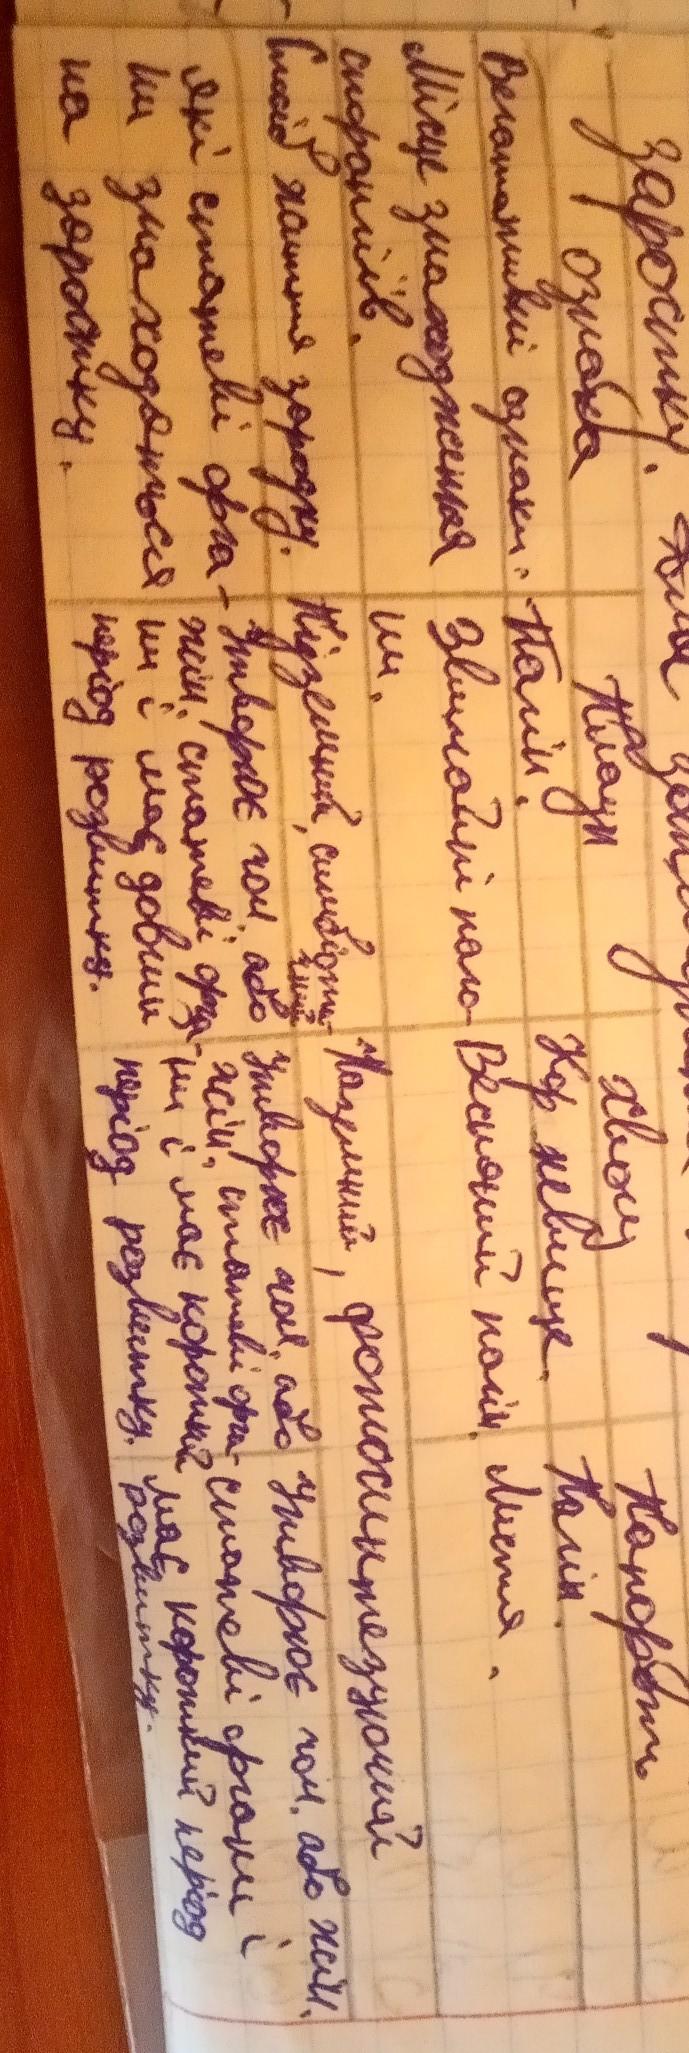 заростку.
Ознака
Плаун
Хвощ
Папороть
Вегетативні ознаки.
Пагін.
Кореневище.
Пагін.
Місце знаходження
спорангіїв.
Звичайні паго-
ни.
Весняний пагін.
Листя.
Спосіб життя зародку.
Підземний, симбіоти-
чний
Наземний, фотосинтезуючий
Які статеві орга-
ни знаходяться
на заростку.
Утворює чол. або
жін. статеві орга-
ни і має довгий
період розвитку.
Утворює чол. або
жін. статеві орга-
ни і має короткий
період розвитку.
Утворює чол. або жін.
статеві органи і
має короткий період
розвитку.